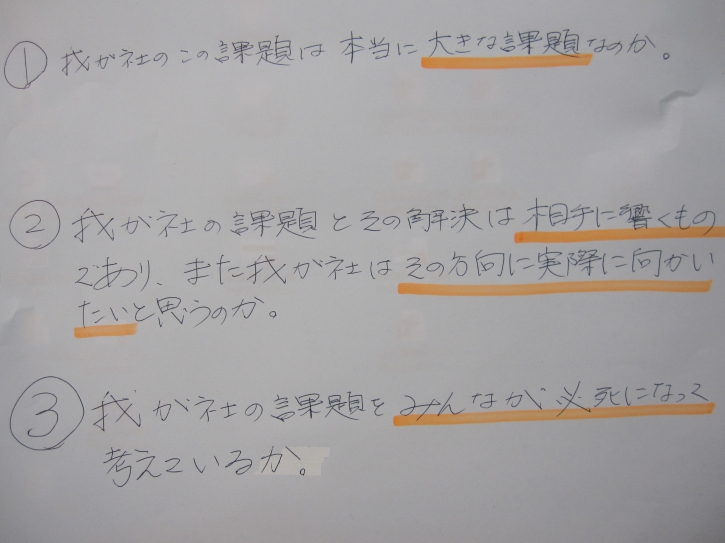 ① 我が社のこの課題は本当に大きな課題なのか。
② 我が社の課題とその解決は相手に響くもの
であり、また我が社はその方向に実際に向かい
たいと思うのか。
③ 我が社の課題をみんなが必死になって
考えているか。